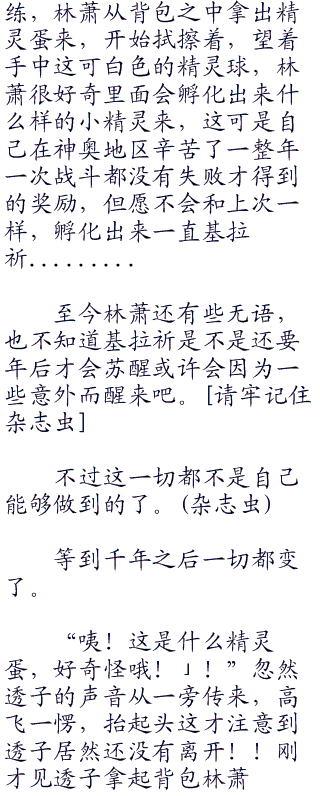 练，林萧从背包之中拿出精
灵蛋来，开始拭擦着，望着
手中这可白色的精灵球，林
萧很好奇里面会孵化出来什
么样的小精灵来，这可是自
己在神奥地区辛苦了一整年
一次战斗都没有失败才得到
的奖励，但愿不会和上次一
样，孵化出来一直基拉
祈.........
至今林萧还有些无语，
也不知道基拉祈是不是还要
年后才会苏醒或许会因为一
些意外而醒来吧。[请牢记住
杂志虫]
不过这一切都不是自己
能够做到的了。(杂志虫)
等到千年之后一切都变
了。
“咦！这是什么精灵
蛋，好奇怪哦！」！”忽然
透子的声音从一旁传来，高
飞一愣，抬起头这才注意到
透子居然还没有离开！！刚
才见透子拿起背包林萧